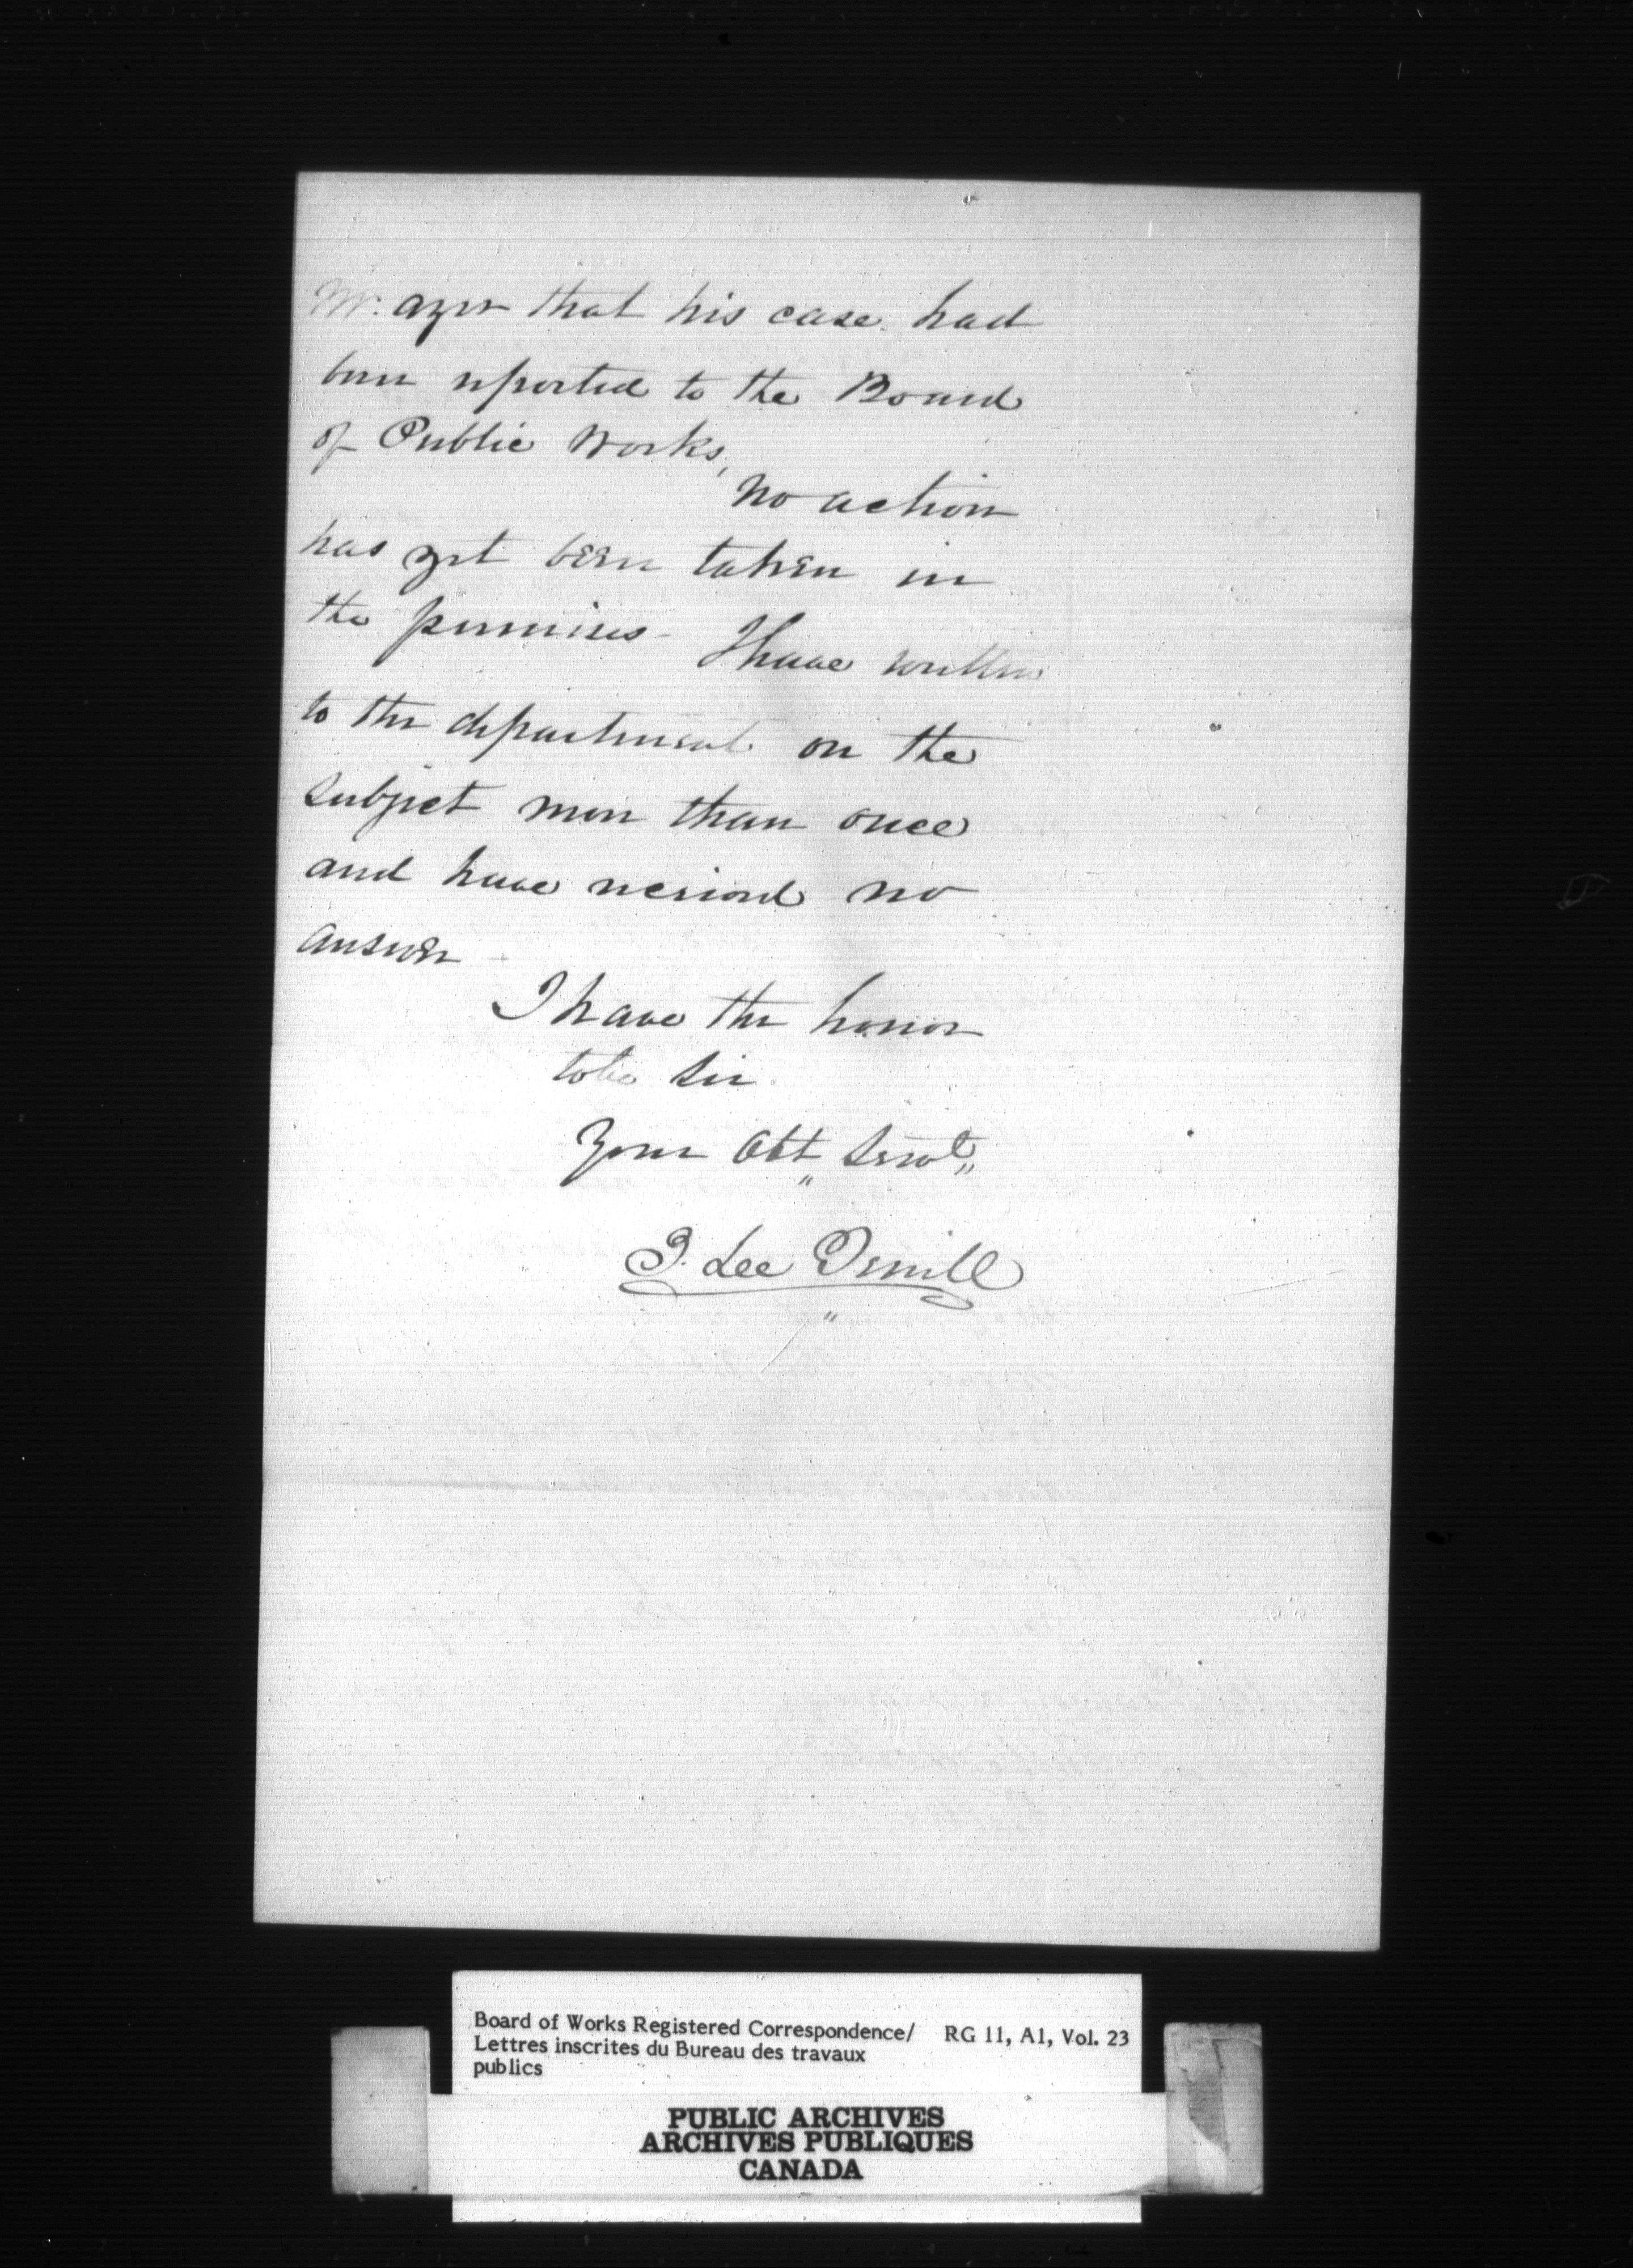 Mr. Ayer that his case had
been reported to the Board
of Public Works,
No action
has yet been taken in
the premises - I have written
to the department on the
subject more than once
and have received no
answer
I have the honor
to be Sir
Your Obt Servt
Lee
Board of Works Registered Correspondence/ RG 11, A1, Vol. 23
Lettres inscrites du Bureau des travaux
publics
PUBLIC ARCHIVES
ARCHIVES PUBLIQUES
CANADA